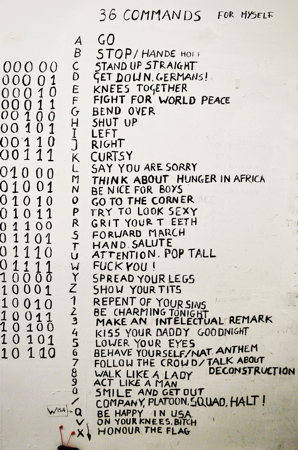 36 COMMANDS FOR MYSELF
A GO
B STOP/HANDE HOH
00000 C STAND UP STRAIGHT
00001 D GET DOWN, GERMANS!
00010 E KNEES TOGETHER
00011 F FIGHT FOR WORLD PEACE
00100 G BEND OVER
00101 H SHUT UP
00110 I LEFT
00111 J RIGHT
K CURTSY
01000 L SAY YOU ARE SORRY
01001 M THINK ABOUT HUNGER IN AFRICA
01010 N BE NICE FOR BOYS
01011 O GO TO THE CORNER
01100 P TRY TO LOOK SEXY
01101 R GRIT YOUR TEETH
01110 S FORWARD MARCH
01111 T HAND. SALUTE
10000 U ATTENTION. POP TALL
10001 W FUCK YOU!
10010 Y SPREAD YOUR LEGS
10011 Z SHOW YOUR TITS
10100 1 REPENT OF YOUR SINS
10101 2 BE CHARMING TONIGHT
10110 3 MAKE AN INTELECTUAL REMARK
4 KISS YOUR DADDY GOODNIGHT
5 LOWER YOUR EYES
6 BEHAVE YOURSELF/NAT. ANTHEM
7 FOLLOW THE CROWD/TALK ABOUT DECONSTRUCTION
8 WALK LIKE A LADY
9 ACT LIKE A MAN
0 SMILE AND GET OUT
/ COMPANY, PLATOON, SQUAD, HALT!
Q BE HAPPY IN USA
V ON YOUR KNEES, BITCH
X HONOUR THE FLAG